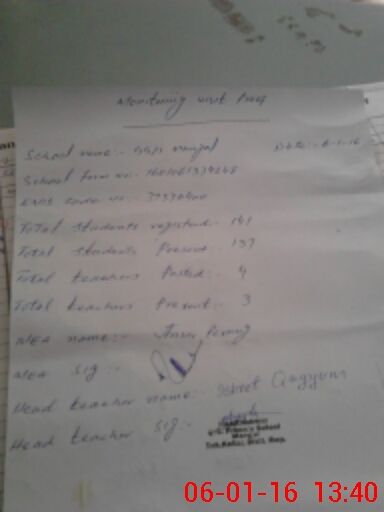 Monitoring visit Proof
School name:- GGPS Manjal Date:- 6-1-16
School form no:-
EMIS code no:- 37330400
Total students registered:- 141
Total students Present:- 137
Total teachers Posted:- 4
Total teachers Present:- 3
MEA name:-
MEA sig:-
Head teacher name:- Ishrat Qayyum
Head teacher sig:-
Primary School
06-01-16 13:40